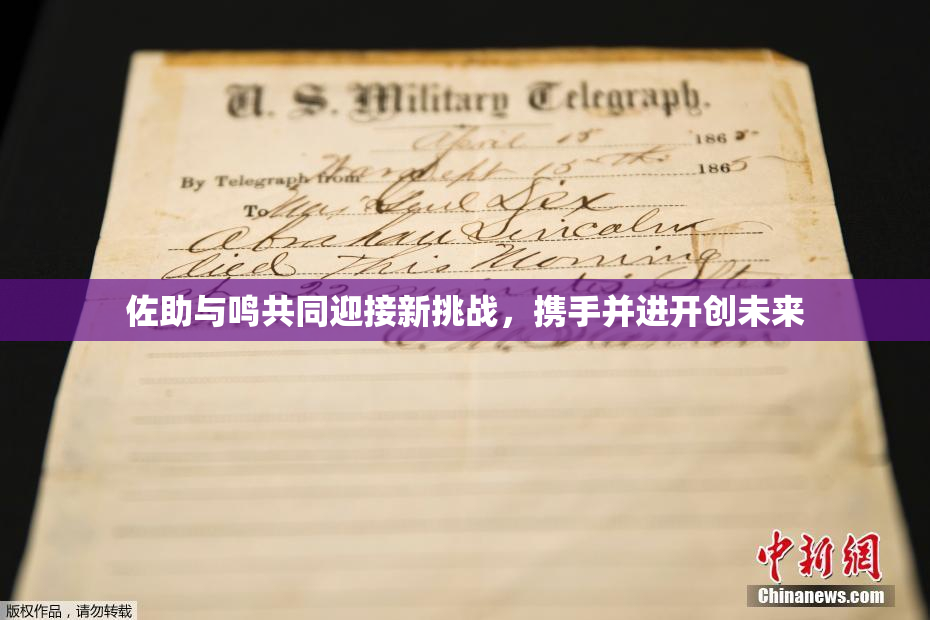 U. S. Military Telegraph.
April 15 1865
By Telegraph from War Dept 15th 1865
To Maj Genl Dix
Abraham Lincoln
died This Morning
at 22 minutes after
佐助与鸣共同迎接新挑战，携手并进开创未来
E. M. Stanton
中新网
Chinanews.com
版权作品，请勿转载